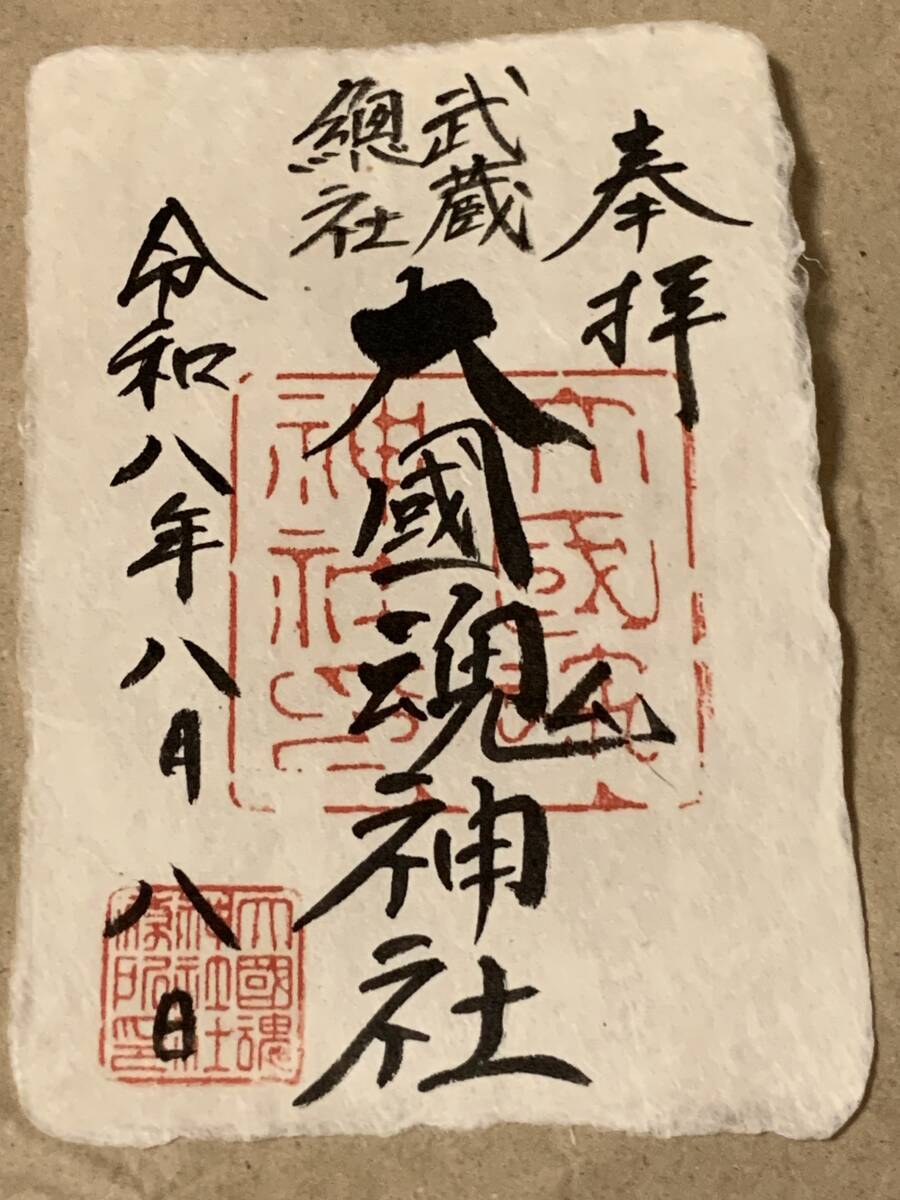 奉拝
武蔵
總社
大國魂神社
令和八年八月八日
大國魂
神社
印
大國魂
神社社
務所印